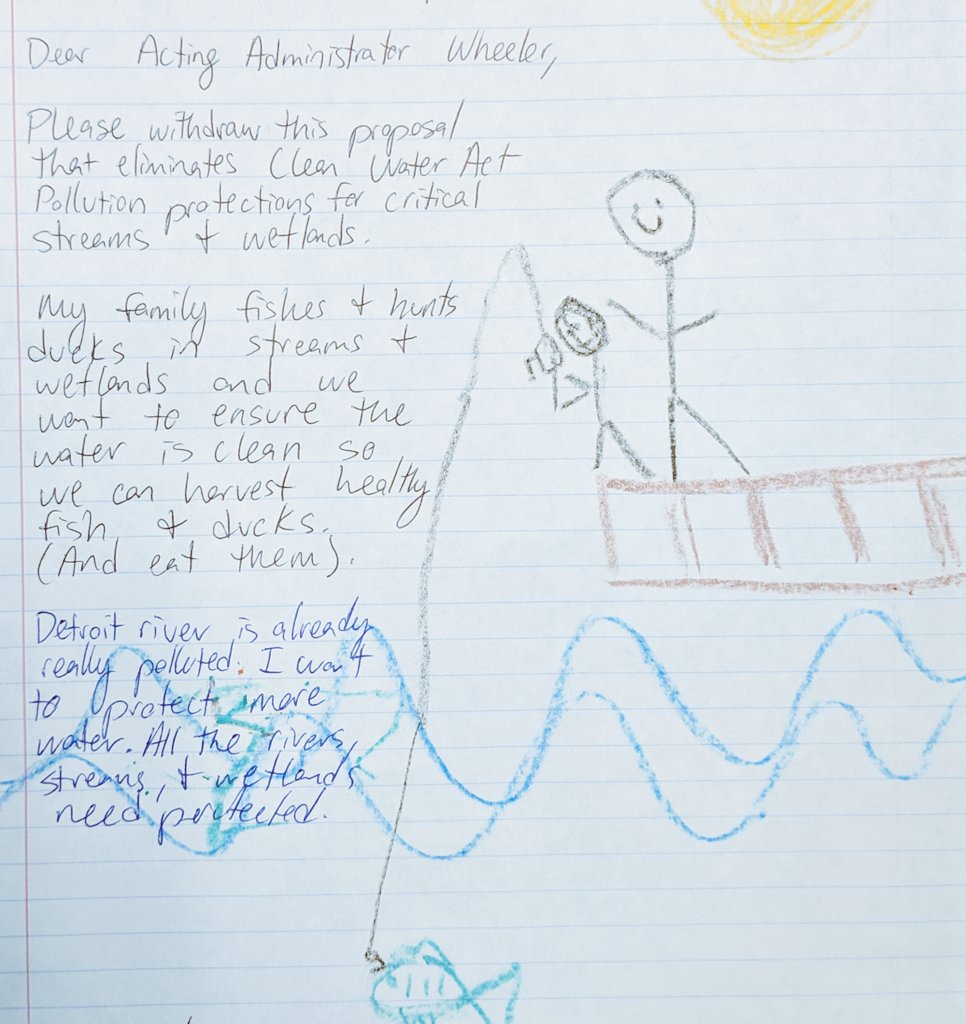 Dear Acting Administrator Wheeler,
Please withdraw this proposal
that eliminates Clean Water Act
Pollution protections for critical
streams & wetlands.
My family fishes & hunts
ducks in streams &
wetlands and we
want to ensure the
water is clean so
we can harvest healthy
fish & ducks.
(And eat them).
Detroit river is already
really polluted. I want
to protect more
water. All the rivers,
streams, & wetlands
need protected.